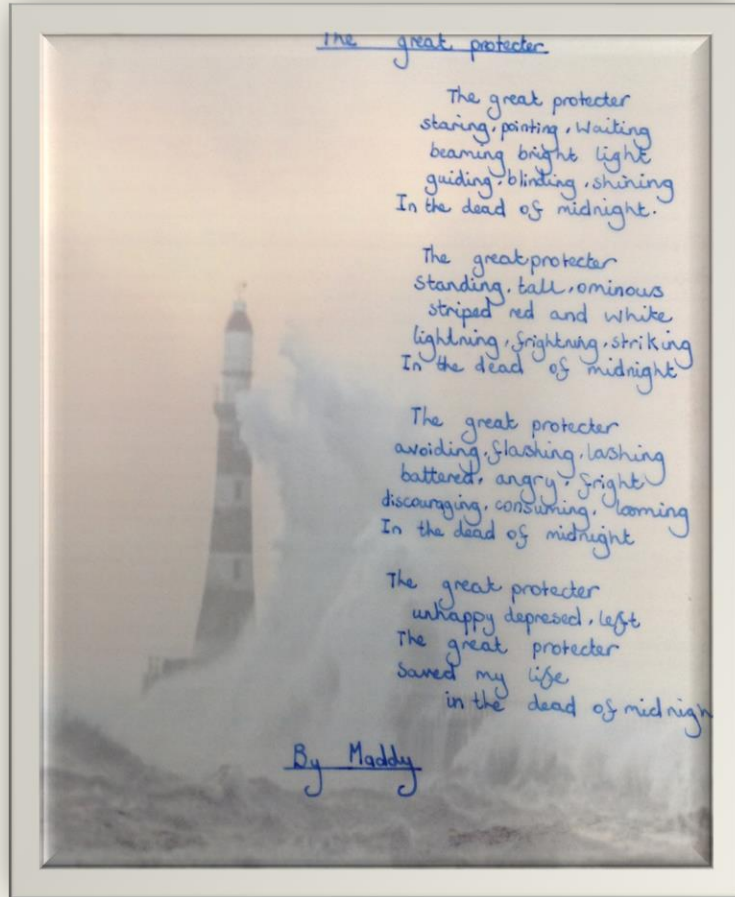 The great protecter
The great protecter
staring, pointing, waiting
beaming bright light
guiding, blinding, shining
In the dead of midnight.
The great protecter
standing, tall, ominous
striped red and white
lightning, frightning, striking
In the dead of midnight
The great protecter
avoiding, flashing, lashing
battered, angry, fright
discouraging, consuming, looming
In the dead of midnight
The great protecter
unhappy depresed, left
The great protecter
Saved my life
in the dead of midnigh
By Maddy